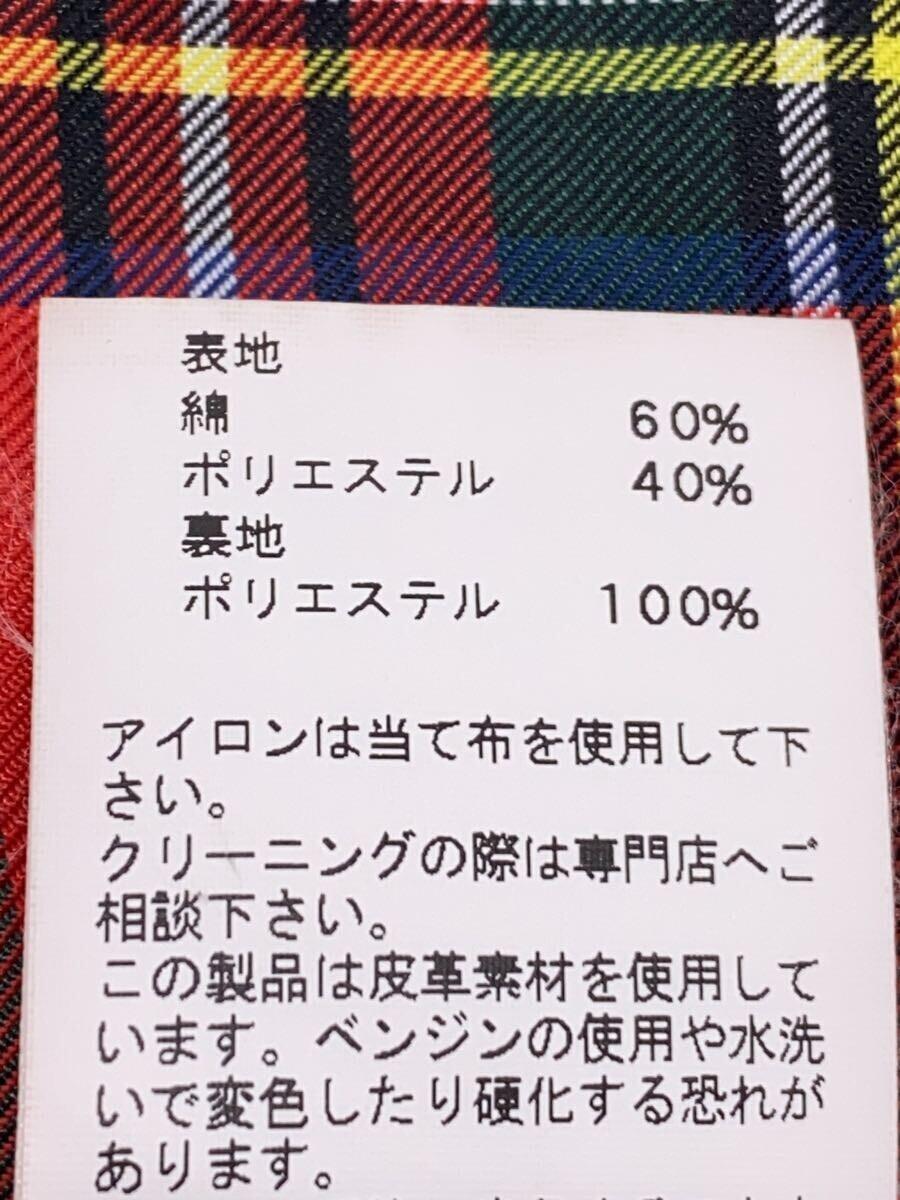 表地
綿 60%
ポリエステル 40%
裏地
ポリエステル 100%
アイロンは当て布を使用して下
さい。
クリーニングの際は専門店へご
相談下さい。
この製品は皮革素材を使用して
います。ベンジンの使用や水洗
いで変色したり硬化する恐れが
あります。